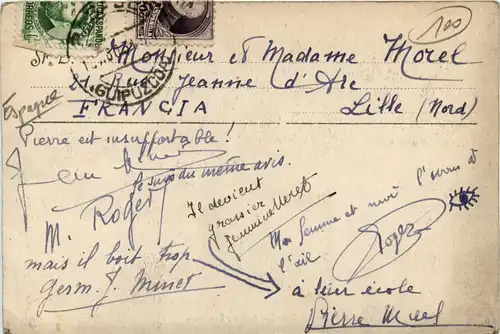 100
Monsieur et Madame Morel
21 Rue Jeanne d'Arc
Lille (Nord)
FRANCIA
GUIPUZCOA
Espagne
Pierre est insupportable !
Je suis du même avis.
Roger
M.
mais il boit trop
Germ. J. Minet
Il devient
grossier
Ma femme et moi l'avons à
l'œil
Roger
à leur école
Pierre Morel